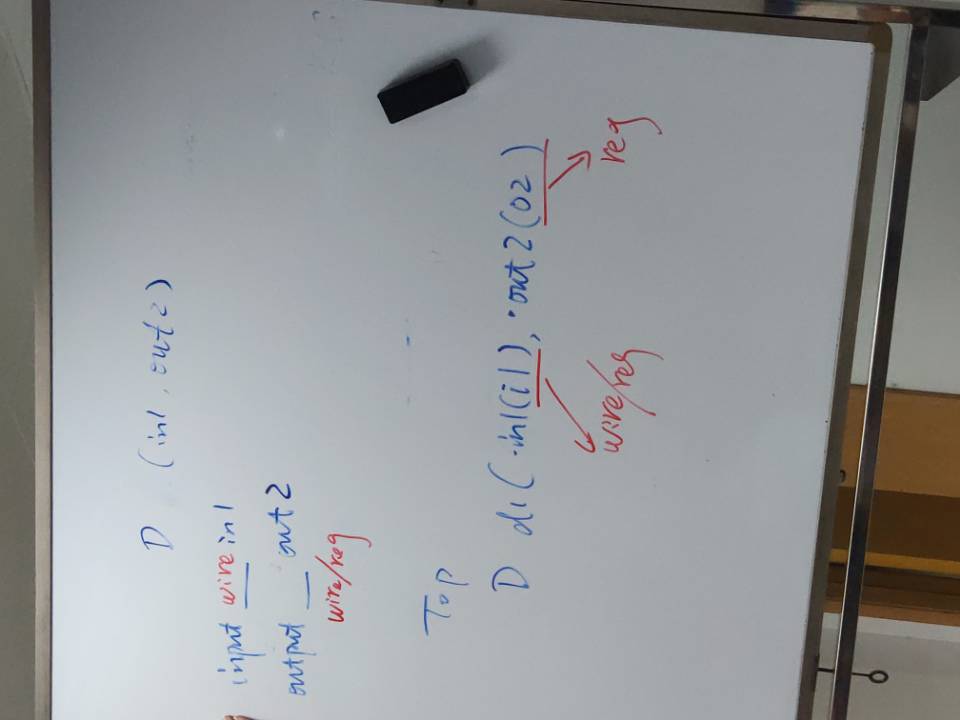 D (in1, out2)
input wire in1
output __ out2
wire/reg
Top
D d1(.in1(i1), .out2(o2)
wire/reg reg